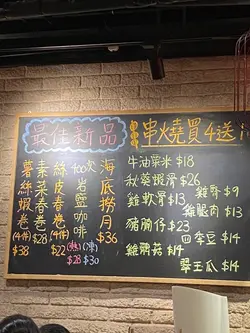 最佳新品
海底撈月
$36
400次岩鹽咖啡
(熱) (凍)
$28 $30
絲皮春卷
(4件)
$22
素菜春卷
(4件)
$28
薯絲蝦卷
(4件)
$38
串燒買4送1
牛油粟米 $18
秋葵蝦滑 $26
雞軟骨 $13
豬胸仔 $23
雞髀菇 $14
雞肾 $9
雞腿肉 $13
四季豆 $14
翠玉瓜 $14